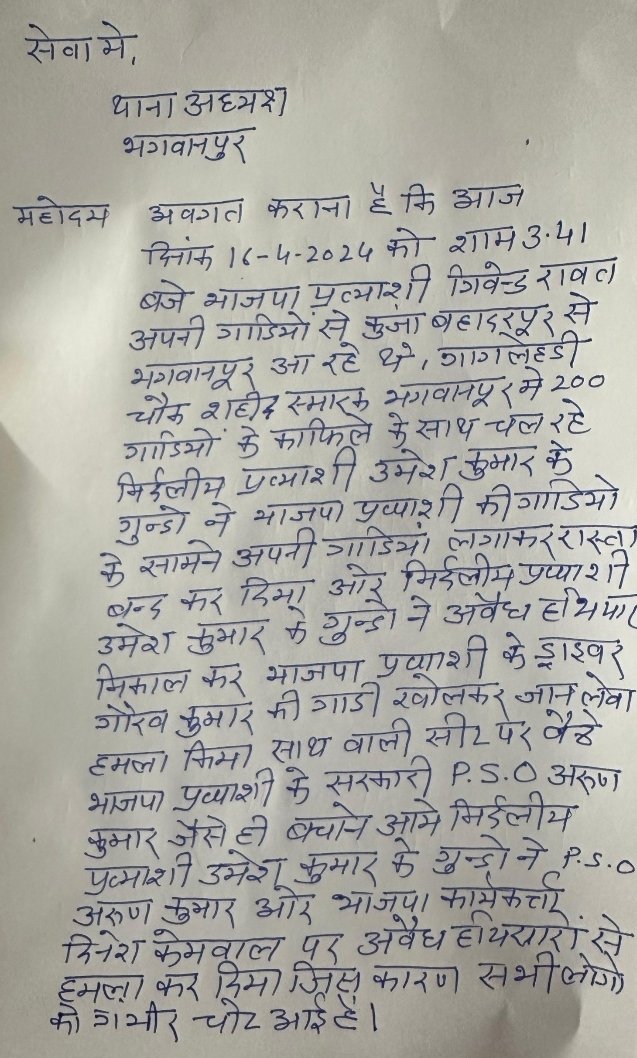 सेवा मे,
थाना अध्यक्ष
भगवानपुर
महोदय अवगत कराना है कि आज
दिनांक 16-4-2024 को शाम 3.41
बजे भाजपा प्रत्याशी त्रिवेन्द्र रावत
अपनी गाडियों से कुंजा बहादरपूर से
भगवानपूर आ रहे थे, गागलहडी
चौक शहीद स्मारक भगवानपूर मे 200
गाडियों के काफिले के साथ चल रहे
निर्दलीय प्रत्याशी उमेश कुमार के
गुन्डो ने भाजपा प्रत्याशी की गाडियो
के सामने अपनी गाडियां लगाकर रास्ता
बन्द कर दिया और निर्दलीय प्रत्याशी
उमेश कुमार के गुन्डो ने अवैध हथियार
निकाल कर भाजपा प्रत्याशी के ड्राइवर
गौरव कुमार की गाडी खोलकर जान लेवा
हमला किया साथ वाली सीट पर बैठे
भाजपा प्रत्याशी के सरकारी P.S.O अरुण
कुमार जैसे ही बचाने आये निर्दलीय
प्रत्याशी उमेश कुमार के गुन्डो ने P.S.O
अरुण कुमार और भाजपा कार्यकर्ता
दिनेश केमवाल पर अवैध हथियारों से
हमला कर दिया जिस कारण सभी लोगो
को गंभीर चोट आई है।